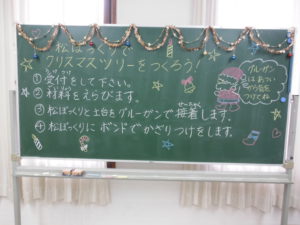 松ぼっくり
クリスマスツリーをつくろう!
① 受付をして下さい。
② 材料をえらびます。
③ 松ぼっくりと土台をグルーガンで接着します。
せっちゃく
④ 松ぼっくりにボンドでかざりつけをします。
グルーガン
はあつい
から
つけてね